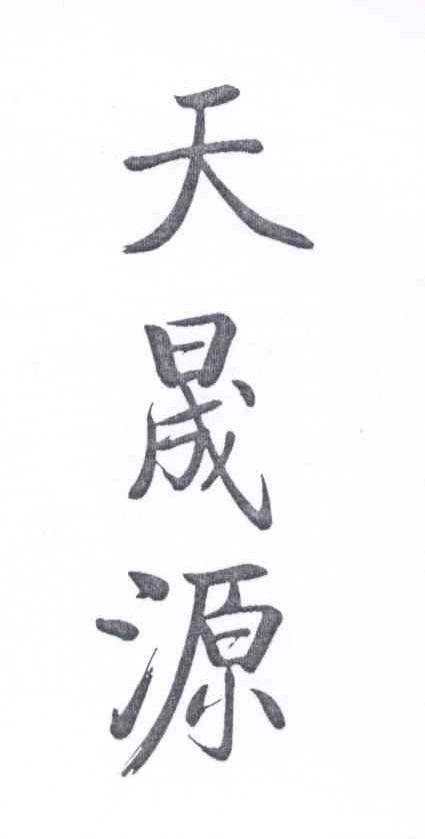 天晟源